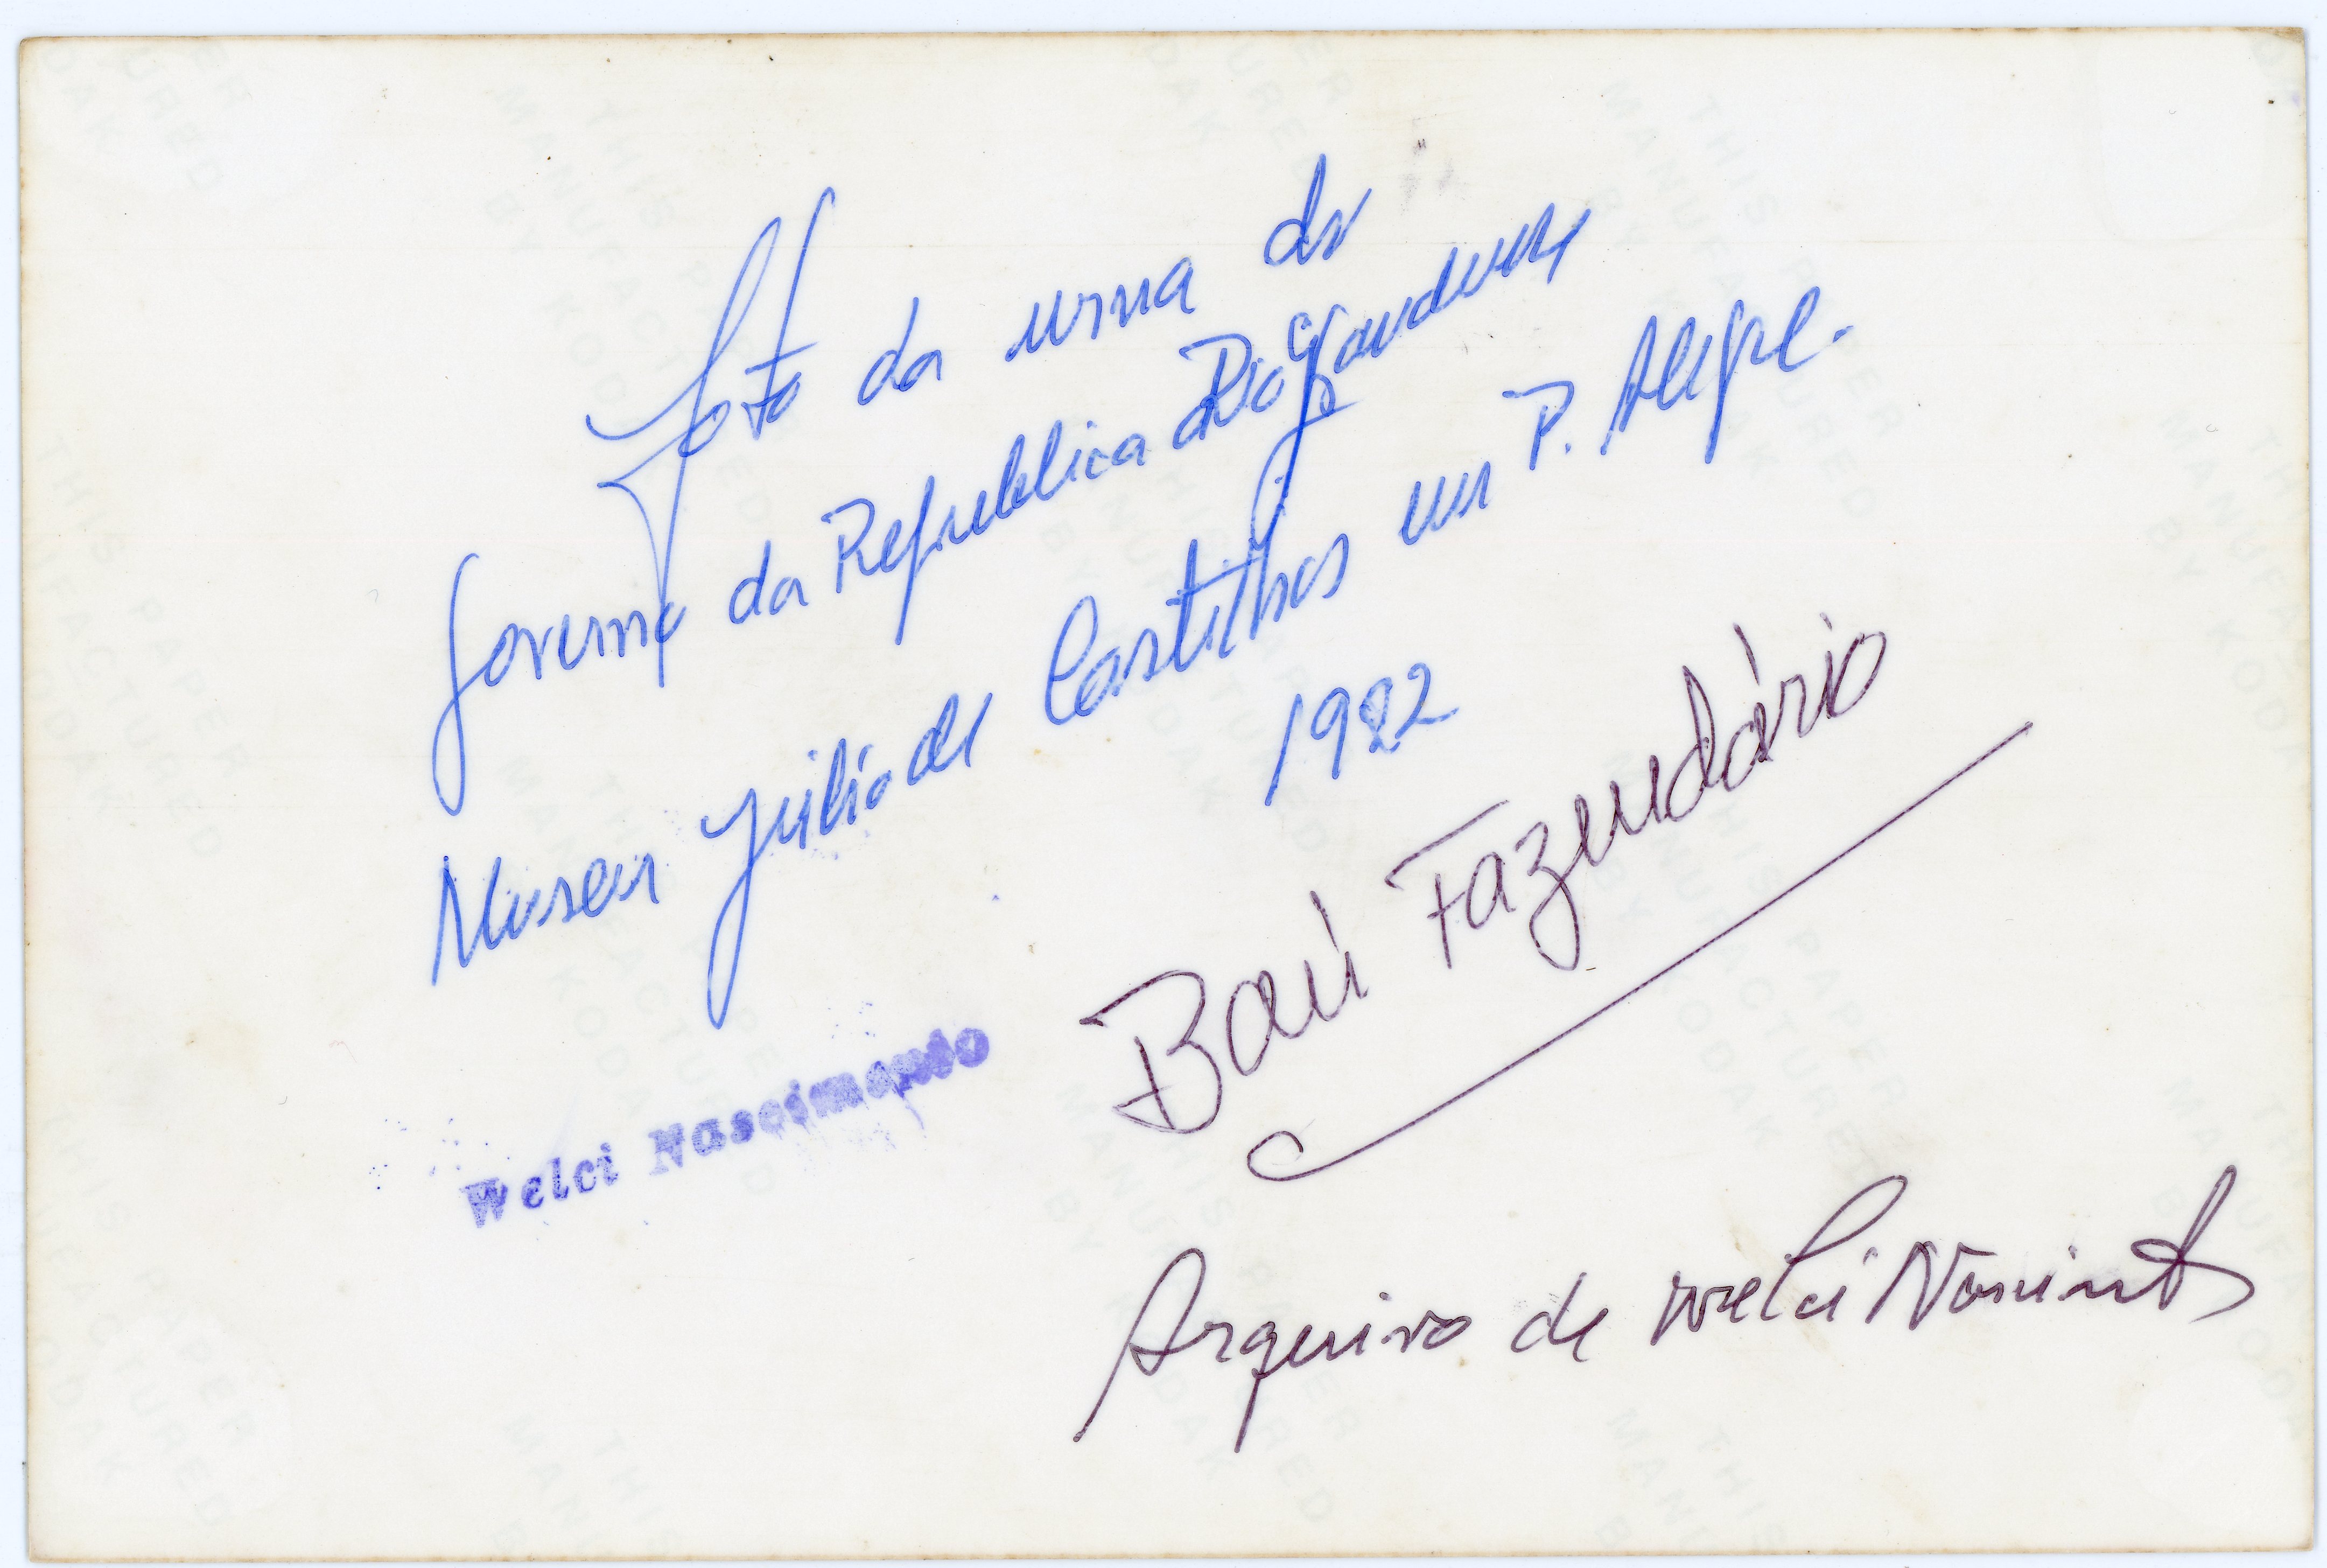 Foto da urna do
Governo da Republica RioGrandense
Museu Júlio de Castilhos em P. Alegre.
1982
Baú Fazendário
Welci Nascimento
Arquivo de Welci Nascimento
THIS PAPER
MANUFACTURED
BY KODAK